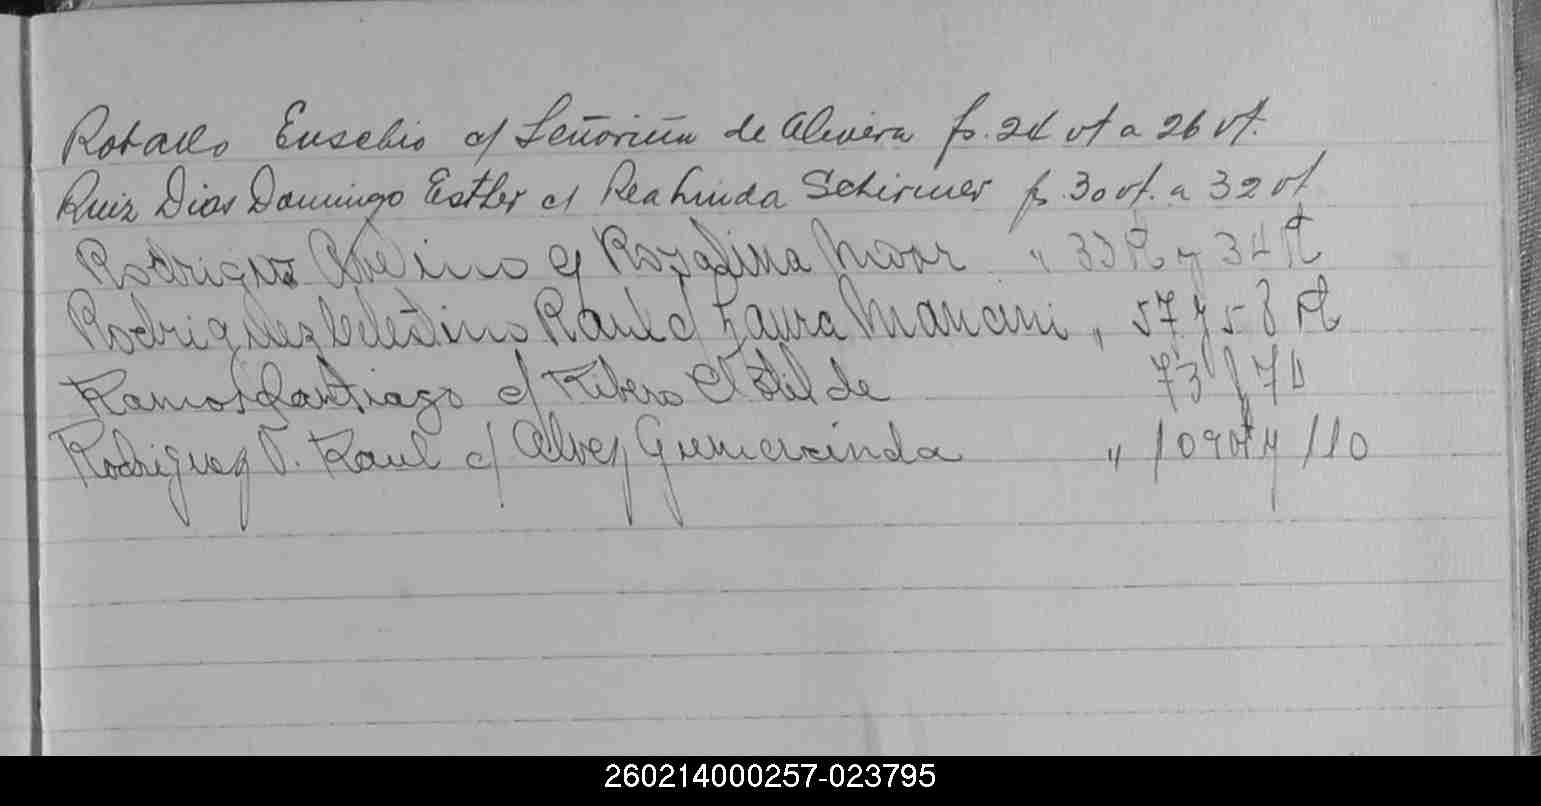 Eusebio c/ Señoriña de Alivera fs. 24 vt a 26 vt.
Ruiz Dias Domingo Esther c/ Schirmer fs 30 vt. a 32 vt
Rodriguez Avelino c/ Rozalina " 33 y 34
Rodriguez Celestino Raul c/ Laura Mancini " 57 y 58
Ramos Santiago c/ Ribero Clotilde 73 y 74
Rodriguez V. Raul c/ Alvez Gumercinda " 109 vt y 110
260214000257-023795